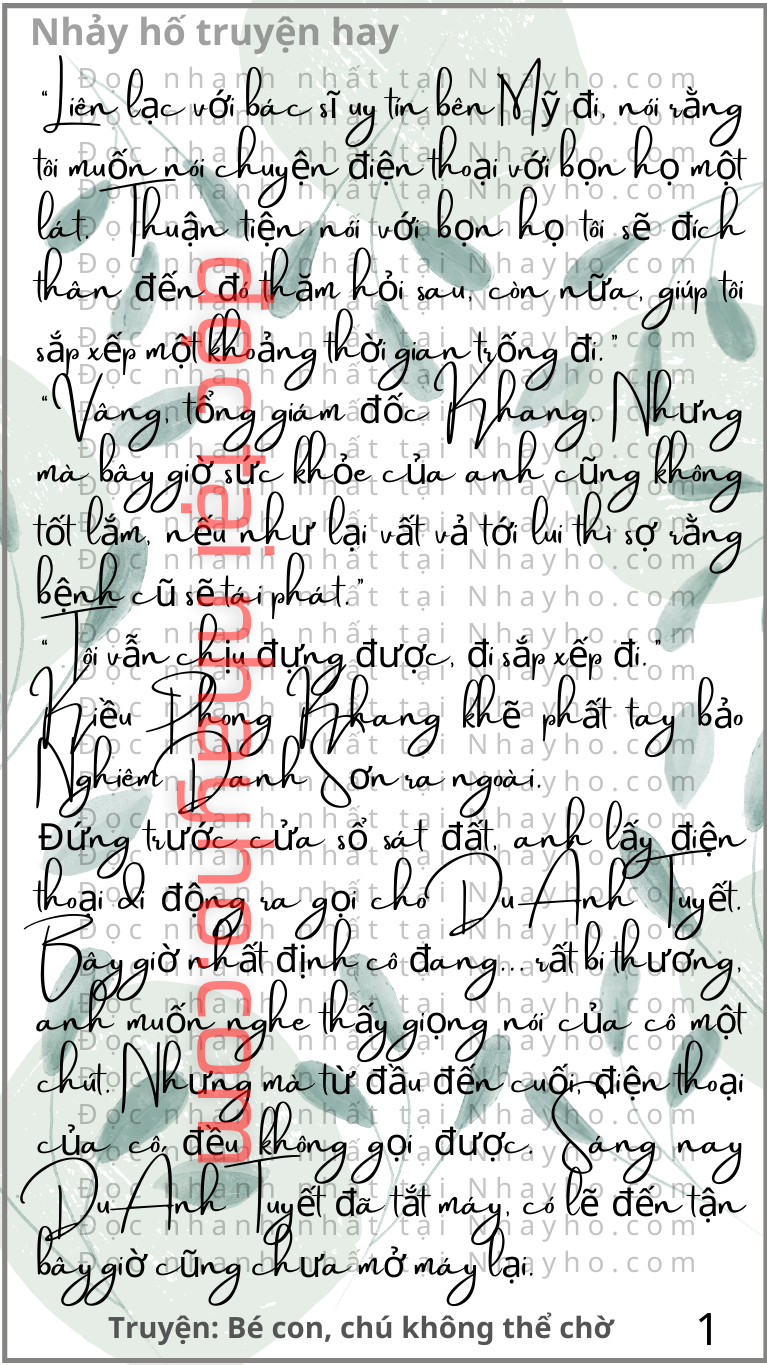 Nhảy hố truyện hay
“Liên lạc với bác sĩ uy tín bên Mỹ đi, nói rằng
tôi muốn nói chuyện điện thoại với bọn họ một
lát. Thuận tiện nói với bọn họ tôi sẽ đích
thân đến đó thăm hỏi sau, còn nữa, giúp tôi
sắp xếp một khoảng thời gian trống đi.”
“Vâng, tổng giám đốc Khang. Nhưng
mà bây giờ sức khỏe của anh cũng không
tốt lắm, nếu như lại vất vả tới lui thì sợ rằng
bệnh cũ sẽ tái phát.”
“Tôi vẫn chịu đựng được, đi sắp xếp đi.”
Kiều Phong Khang khẽ phất tay bảo
Nghiêm Danh Sơn ra ngoài.
Đứng trước cửa sổ sát đất, anh lấy điện
thoại di động ra gọi cho Du Anh Tuyết.
Bây giờ nhất định cô đang... rất bi thương,
anh muốn nghe thấy giọng nói của cô một
chút. Nhưng mà từ đầu đến cuối, điện thoại
của cô, đều không gọi được. Sáng nay
Du Anh Tuyết đã tắt máy, có lẽ đến tận
bây giờ cũng chưa mở máy lại.
đọc tại nhayho.com
Đọc nhanh nhất tại Nhayho.com
Truyện: Bé con, chú không thể chờ
1